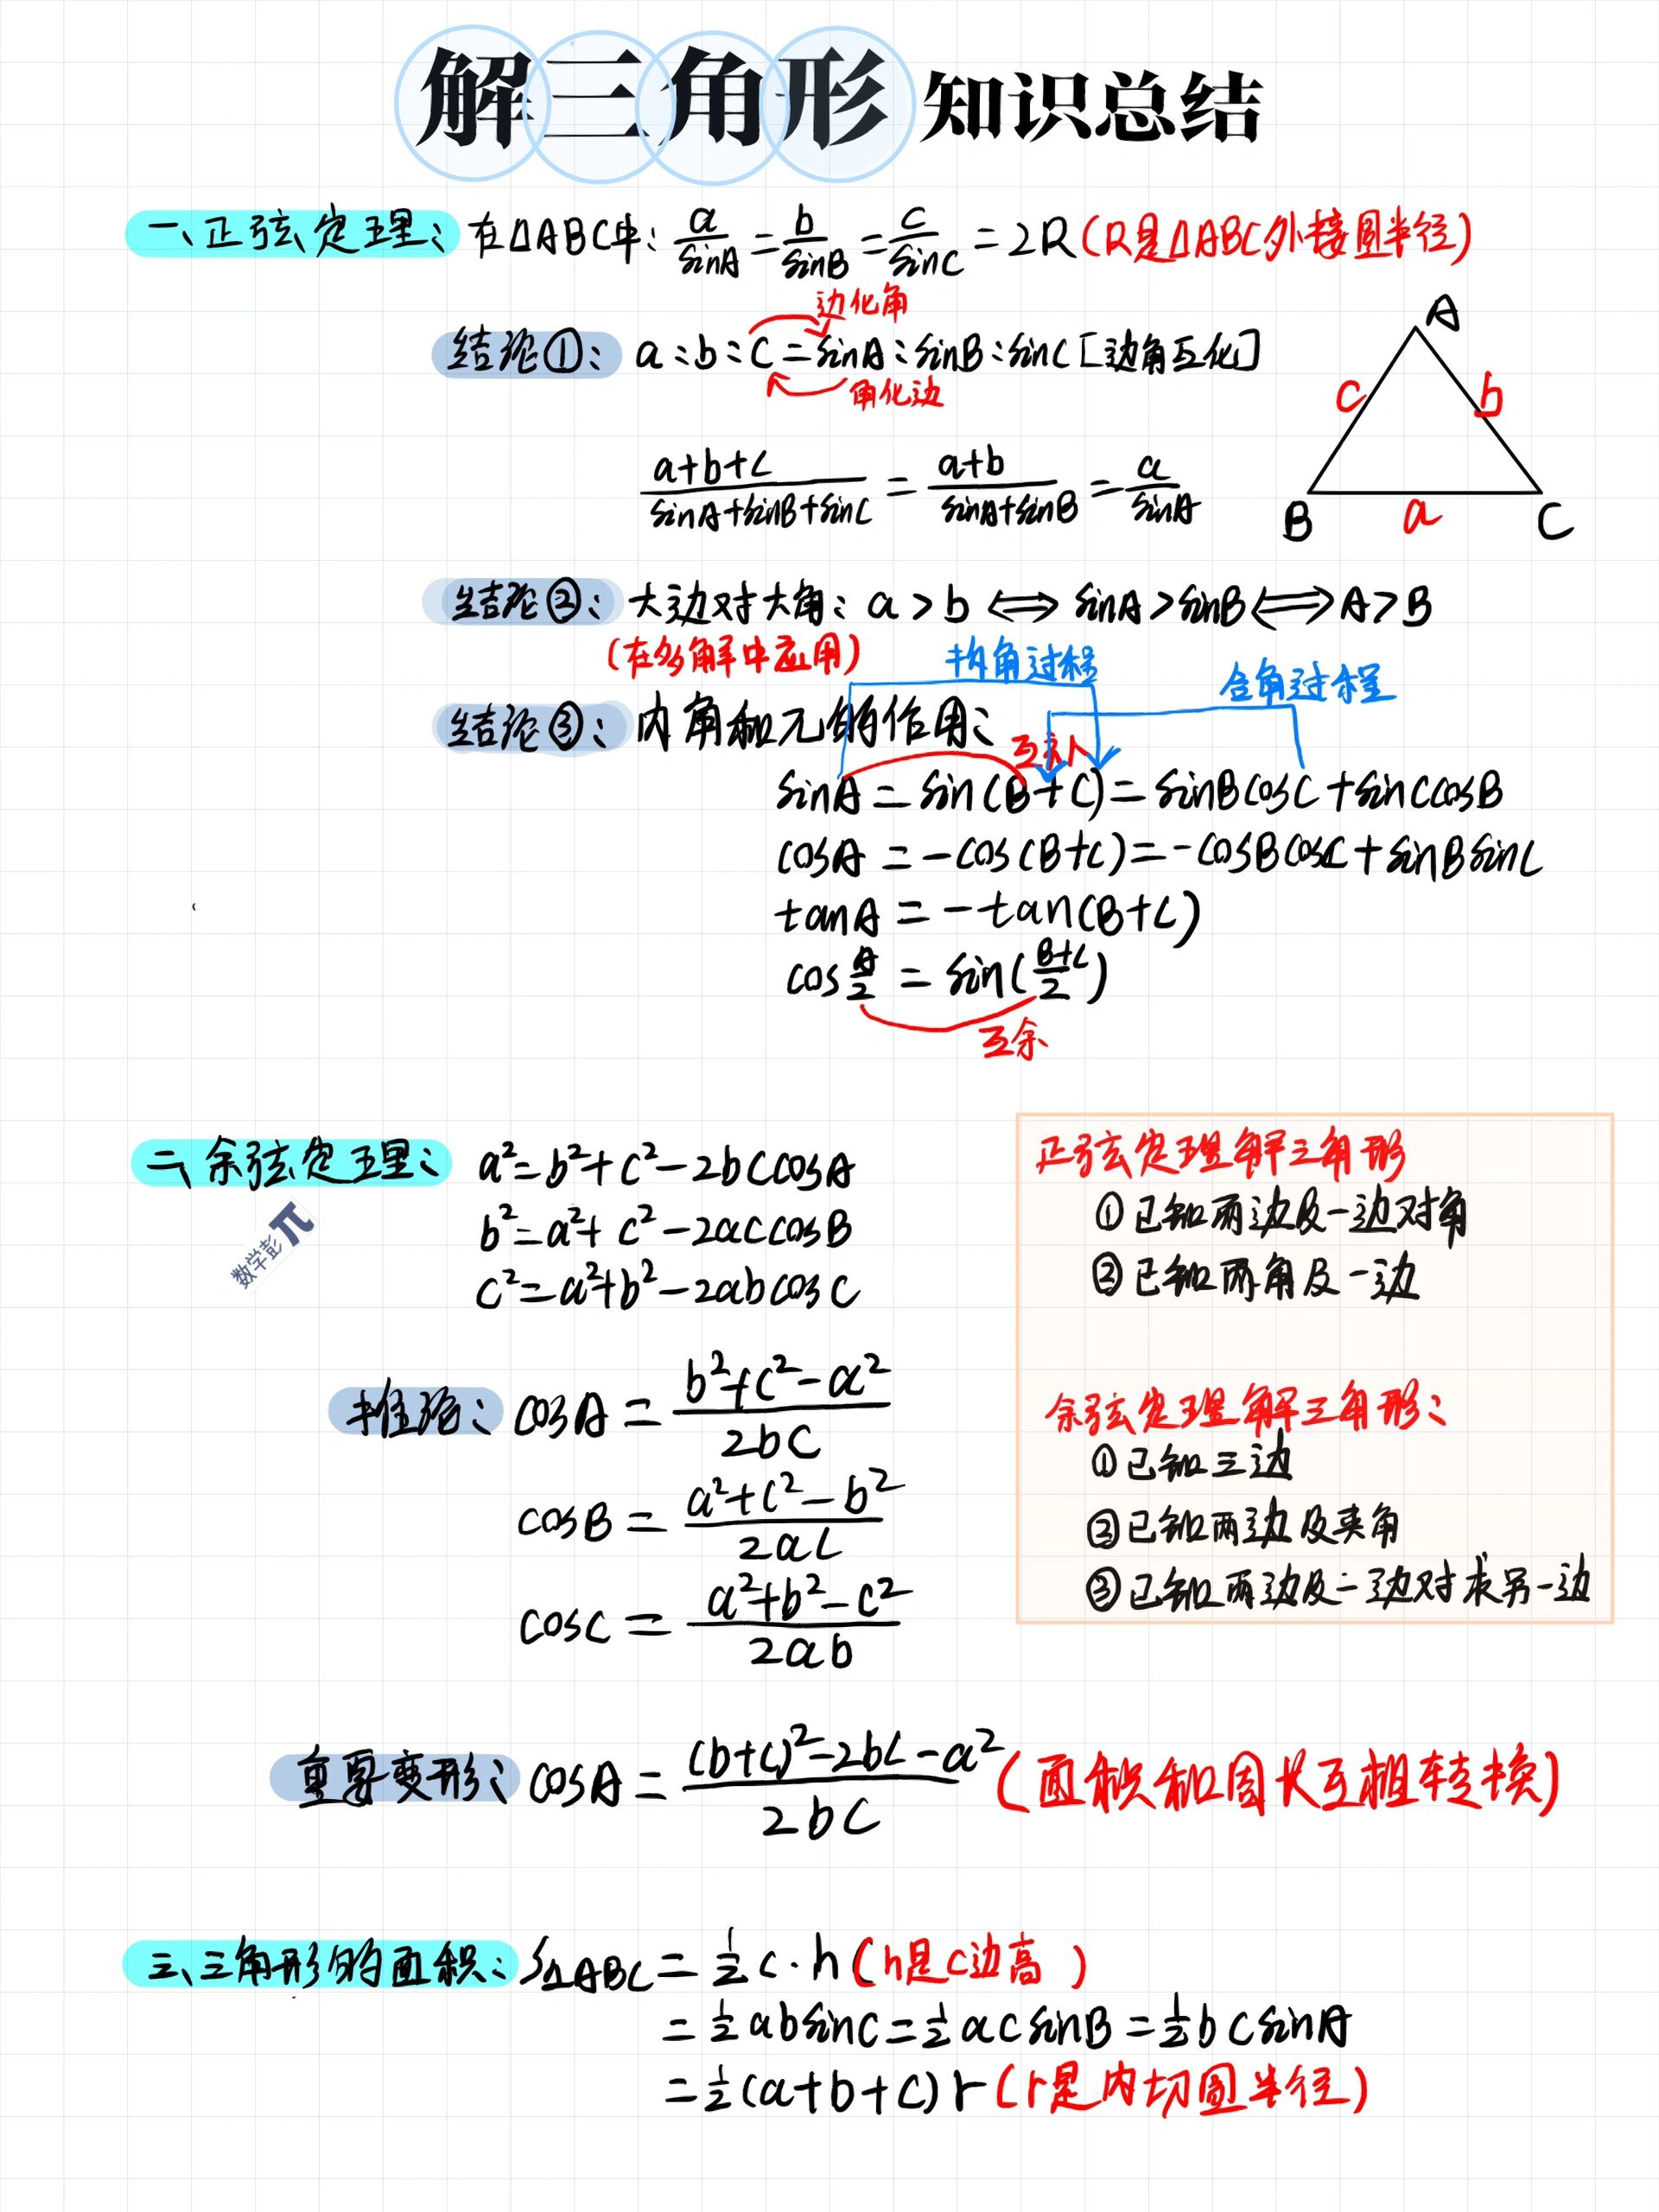 解三角形 知识总结
一、正弦定理: 在△ABC中: a/sinA = b/sinB = c/sinC = 2R (R是△ABC外接圆半径)
边化角
结论①: a:b:c = sinA:sinB:sinC [边角互化]
角化边
(a+b+c)/(sinA+sinB+sinC) = (a+b)/(sinA+sinB) = a/sinA
A
c b
B a C
结论②: 大边对大角: a>b ⟺ sinA>sinB ⟺ A>B
(在多解中应用)
拆角过程
合角过程
结论③: 内角和π的作用:
互补
sinA = sin(B+C) = sinBcosC+sinCcosB
cosA = -cos(B+C) = -cosBcosC+sinBsinC
tanA = -tan(B+C)
cos A/2 = sin((B+C)/2)
互余
二、余弦定理: a²=b²+c²-2bccosA
b²=a²+c²-2accosB
c²=a²+b²-2abcosC
数学彭π
推论: cosA = (b²+c²-a²)/2bc
cosB = (a²+c²-b²)/2ac
cosC = (a²+b²-c²)/2ab
正弦定理解三角形
①已知两边及一边对角
②已知两角及一边
余弦定理解三角形:
①已知三边
②已知两边及夹角
③已知两边及一边对求另一边
重要变形: cosA = ((b+c)²-2bc-a²)/2bc (面积和周长互相转换)
三、三角形的面积: S△ABC = ½c·h (h是c边高)
= ½absinC = ½acsinB = ½bcsinA
= ½(a+b+c)r (r是内切圆半径)